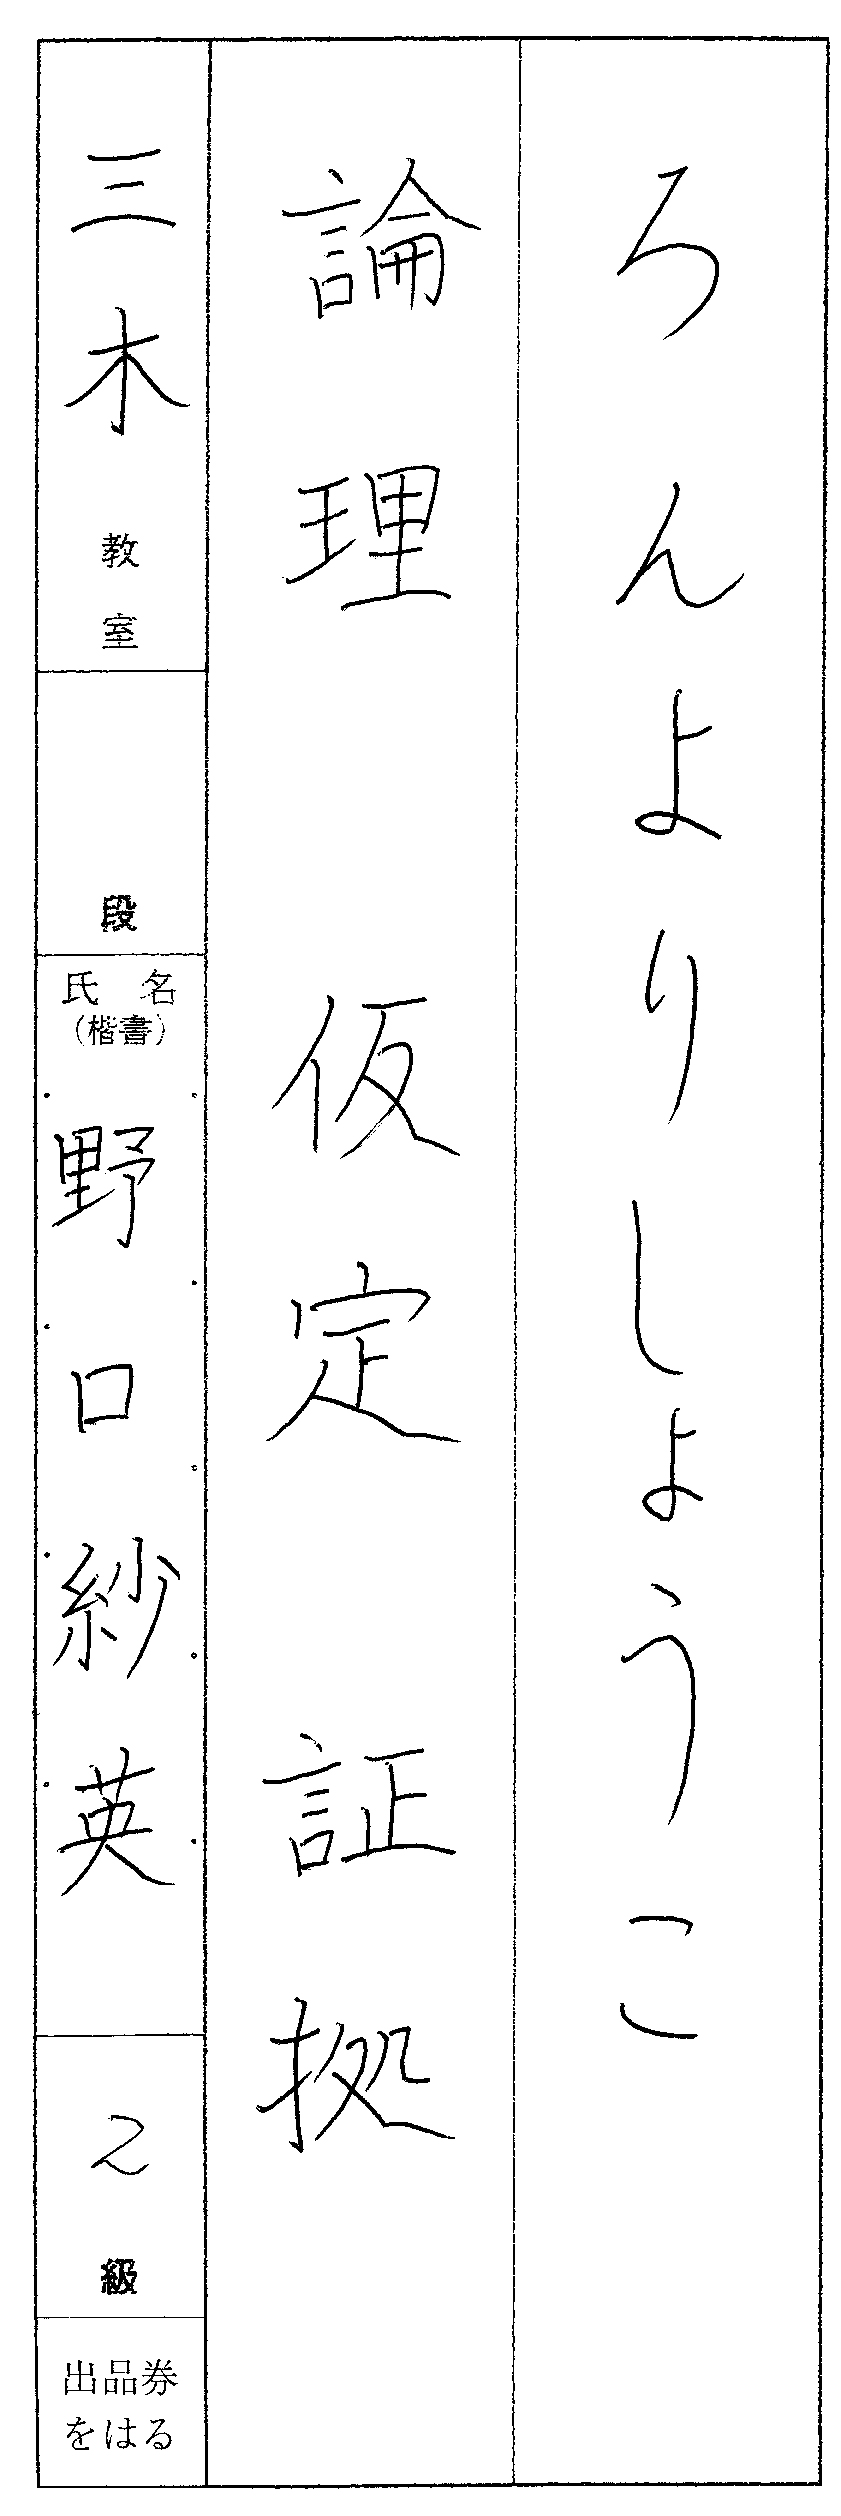 ろんよりしょうこ
論理 仮定 証拠
三木教室
段
氏名
(楷書)
野口紗英
2級
出品券
をはる